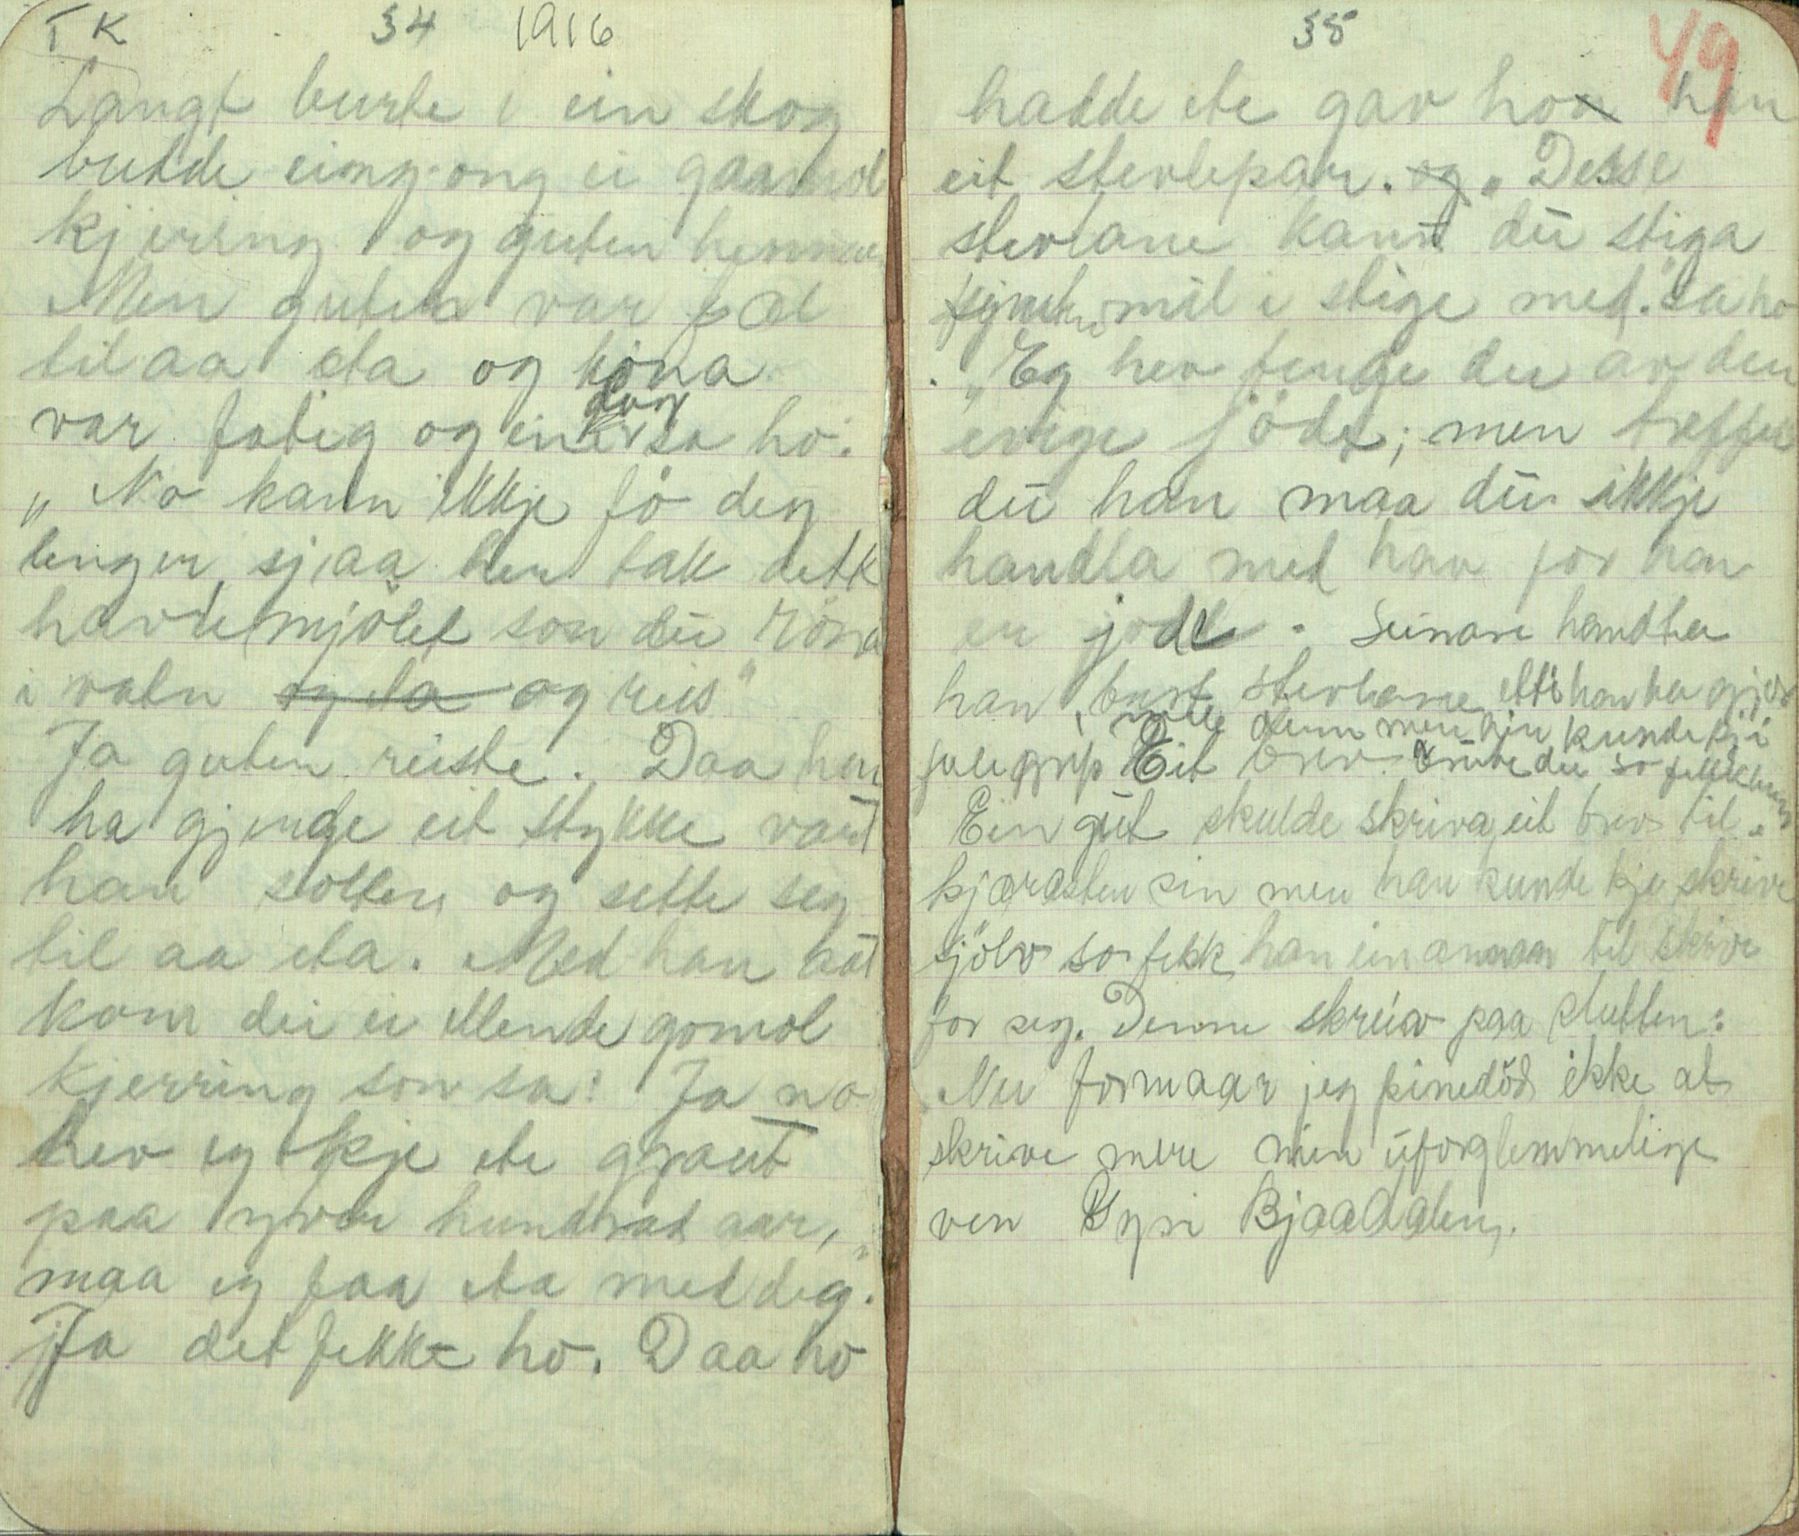 TK 34 1916
Langt burte i ein skog
budde eingong ei gaamol
kjerring og guten hennar
Men guten var fæl
til aa eta og kona
var fatig og ein dag sa ho:
„No kann ikkje fø deg
lenger, sjaa her tak dette
havremjølet som du røra
i vatn og eta og reis"
Ja guten reiste. Daa han
ha gjenge eit stykke vart
han solten og sette seg
til aa eta. Med han aat
kom dei ei ellende gomol
kjerring som sa: Ja no
hev eg kje ete graut
paa yver hundrad aar,
maa eg faa eta med deg."
Ja det fekk ho. Daa ho
35 49
hadde ete gav ho han
eit stevlepar. og „Desse
stevlane kann du stiga
mil i stige med." sa ho
„Eg hev fenge dei av den
evige jøde; men treffer
du han maa du ikkje
handla med han for han
er jøde. Seinare handla
han burt stevlane etti han ha gjort
mæ deim men hin kunde kji
Eit brev bruke dei so
Ein gut skulde skriva eit brev til
kjærasten sin men han kunde kje skrive
sjølv so fekk han ein annan til skrive
for seg. Denne skreiv paa slutten:
Nu formaar jeg pinedød ikke at
skrive mere min uforglemmelige
ven Bjaadalen.